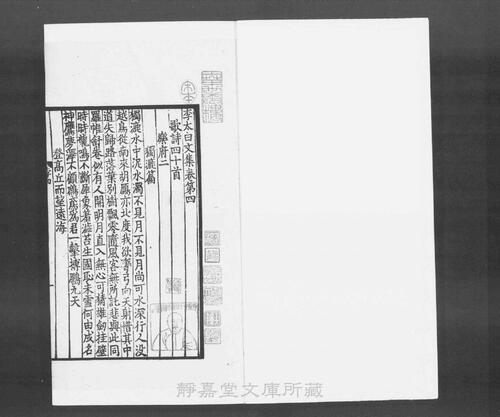 李太白文集卷第四
歌詩四十首
樂府二
獨漉篇
獨漉水中泥水濁不見月不見月尚可水深行人没
越鳥從南來胡鷹亦北度我欲彎弓向天射惜其中
道失歸路落葉别樹飄零隨風客無所託悲與此同
羅幃舒卷似有人開明月直入無心可猜雄劒挂壁
時時龍鳴不斷犀象羞澁苔生國恥未雪何由成名
神鷹夢澤不顧鴟鳶爲君一擊搏鵬九天
登高丘而望遠海
靜嘉堂文庫所藏